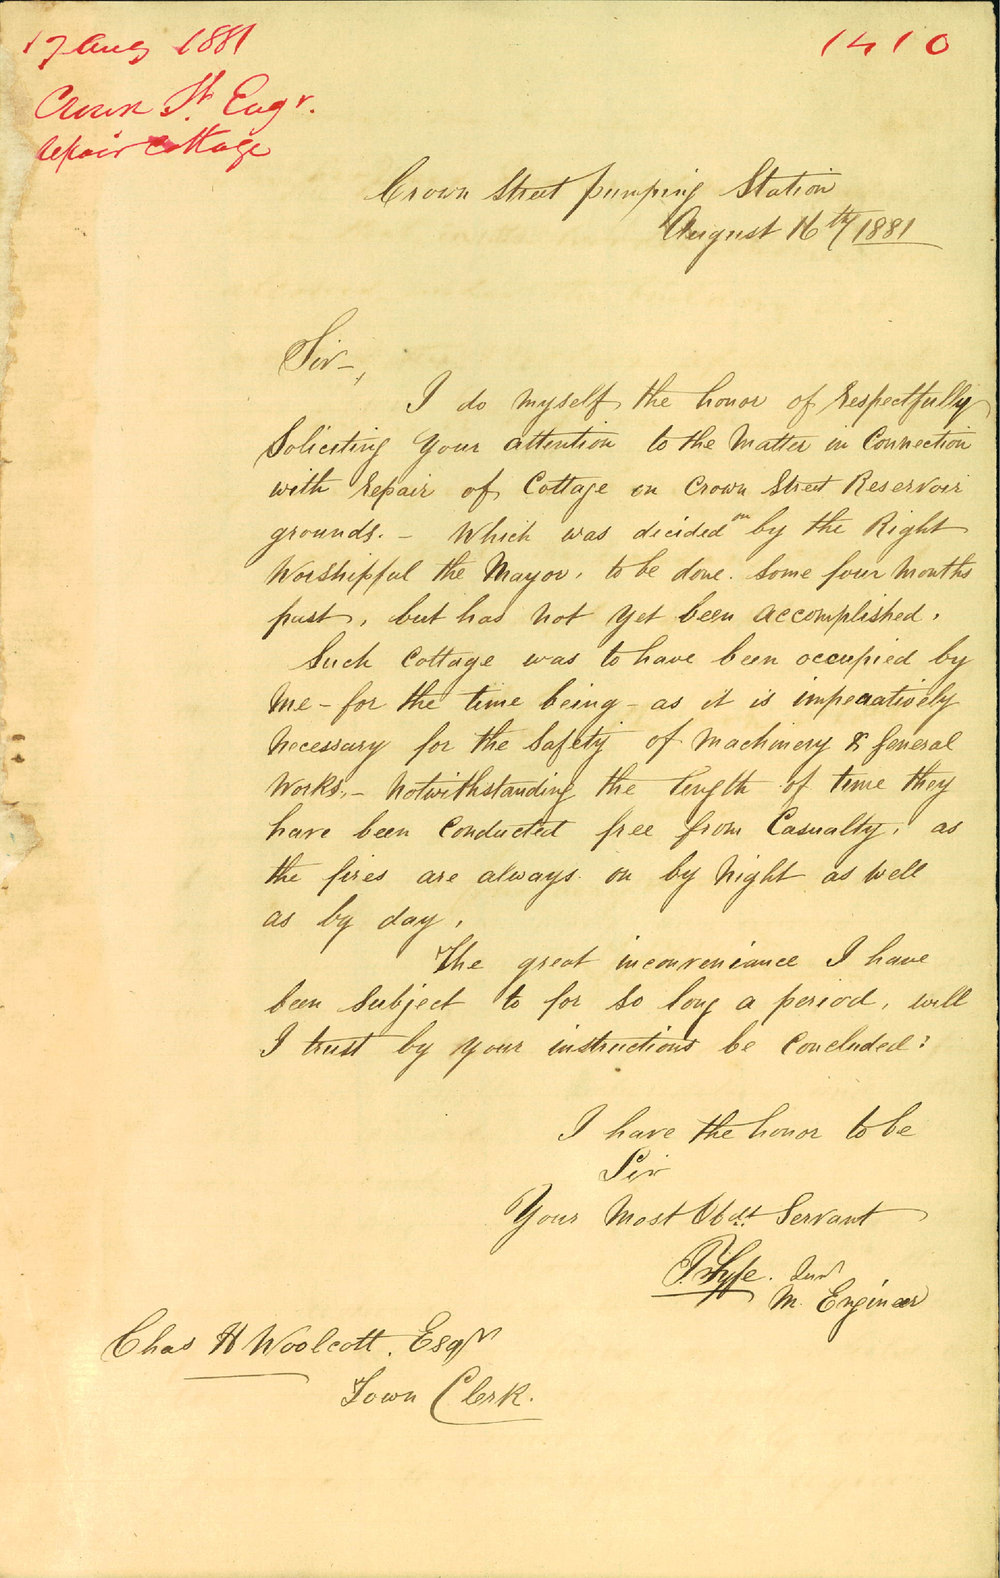 17 Aug 1881
1410
Crown St. Engr.
repair cottage
Crown Street pumping Station
August 16th/1881
Sir–,
I do myself the honor of respectfully
Soliciting your attention to the Matter in Connection
with repair of Cottage on Crown Street Reservoir
grounds. – Which was decided on by the Right
Worshipful the Mayor, to be done. Some four Months
past, but has not yet been accomplished.
Such Cottage was to have been occupied by
Me – for the time being – as it is imperatively
necessary for the Safety of Machinery & general
Works, – Notwithstanding the length of time they
have been Conducted free from Casualty, as
the fires are always on by Night as well
as by day.
The great inconveniance I have
been Subject to for so long a period, will
I trust by your instructions be Concluded:
I have the honor to be
Sir
Your Most Obdt. Servant
Fyfe. Junr
M. Engineer
Chas H Woolcott. Esqr
Town Clerk.